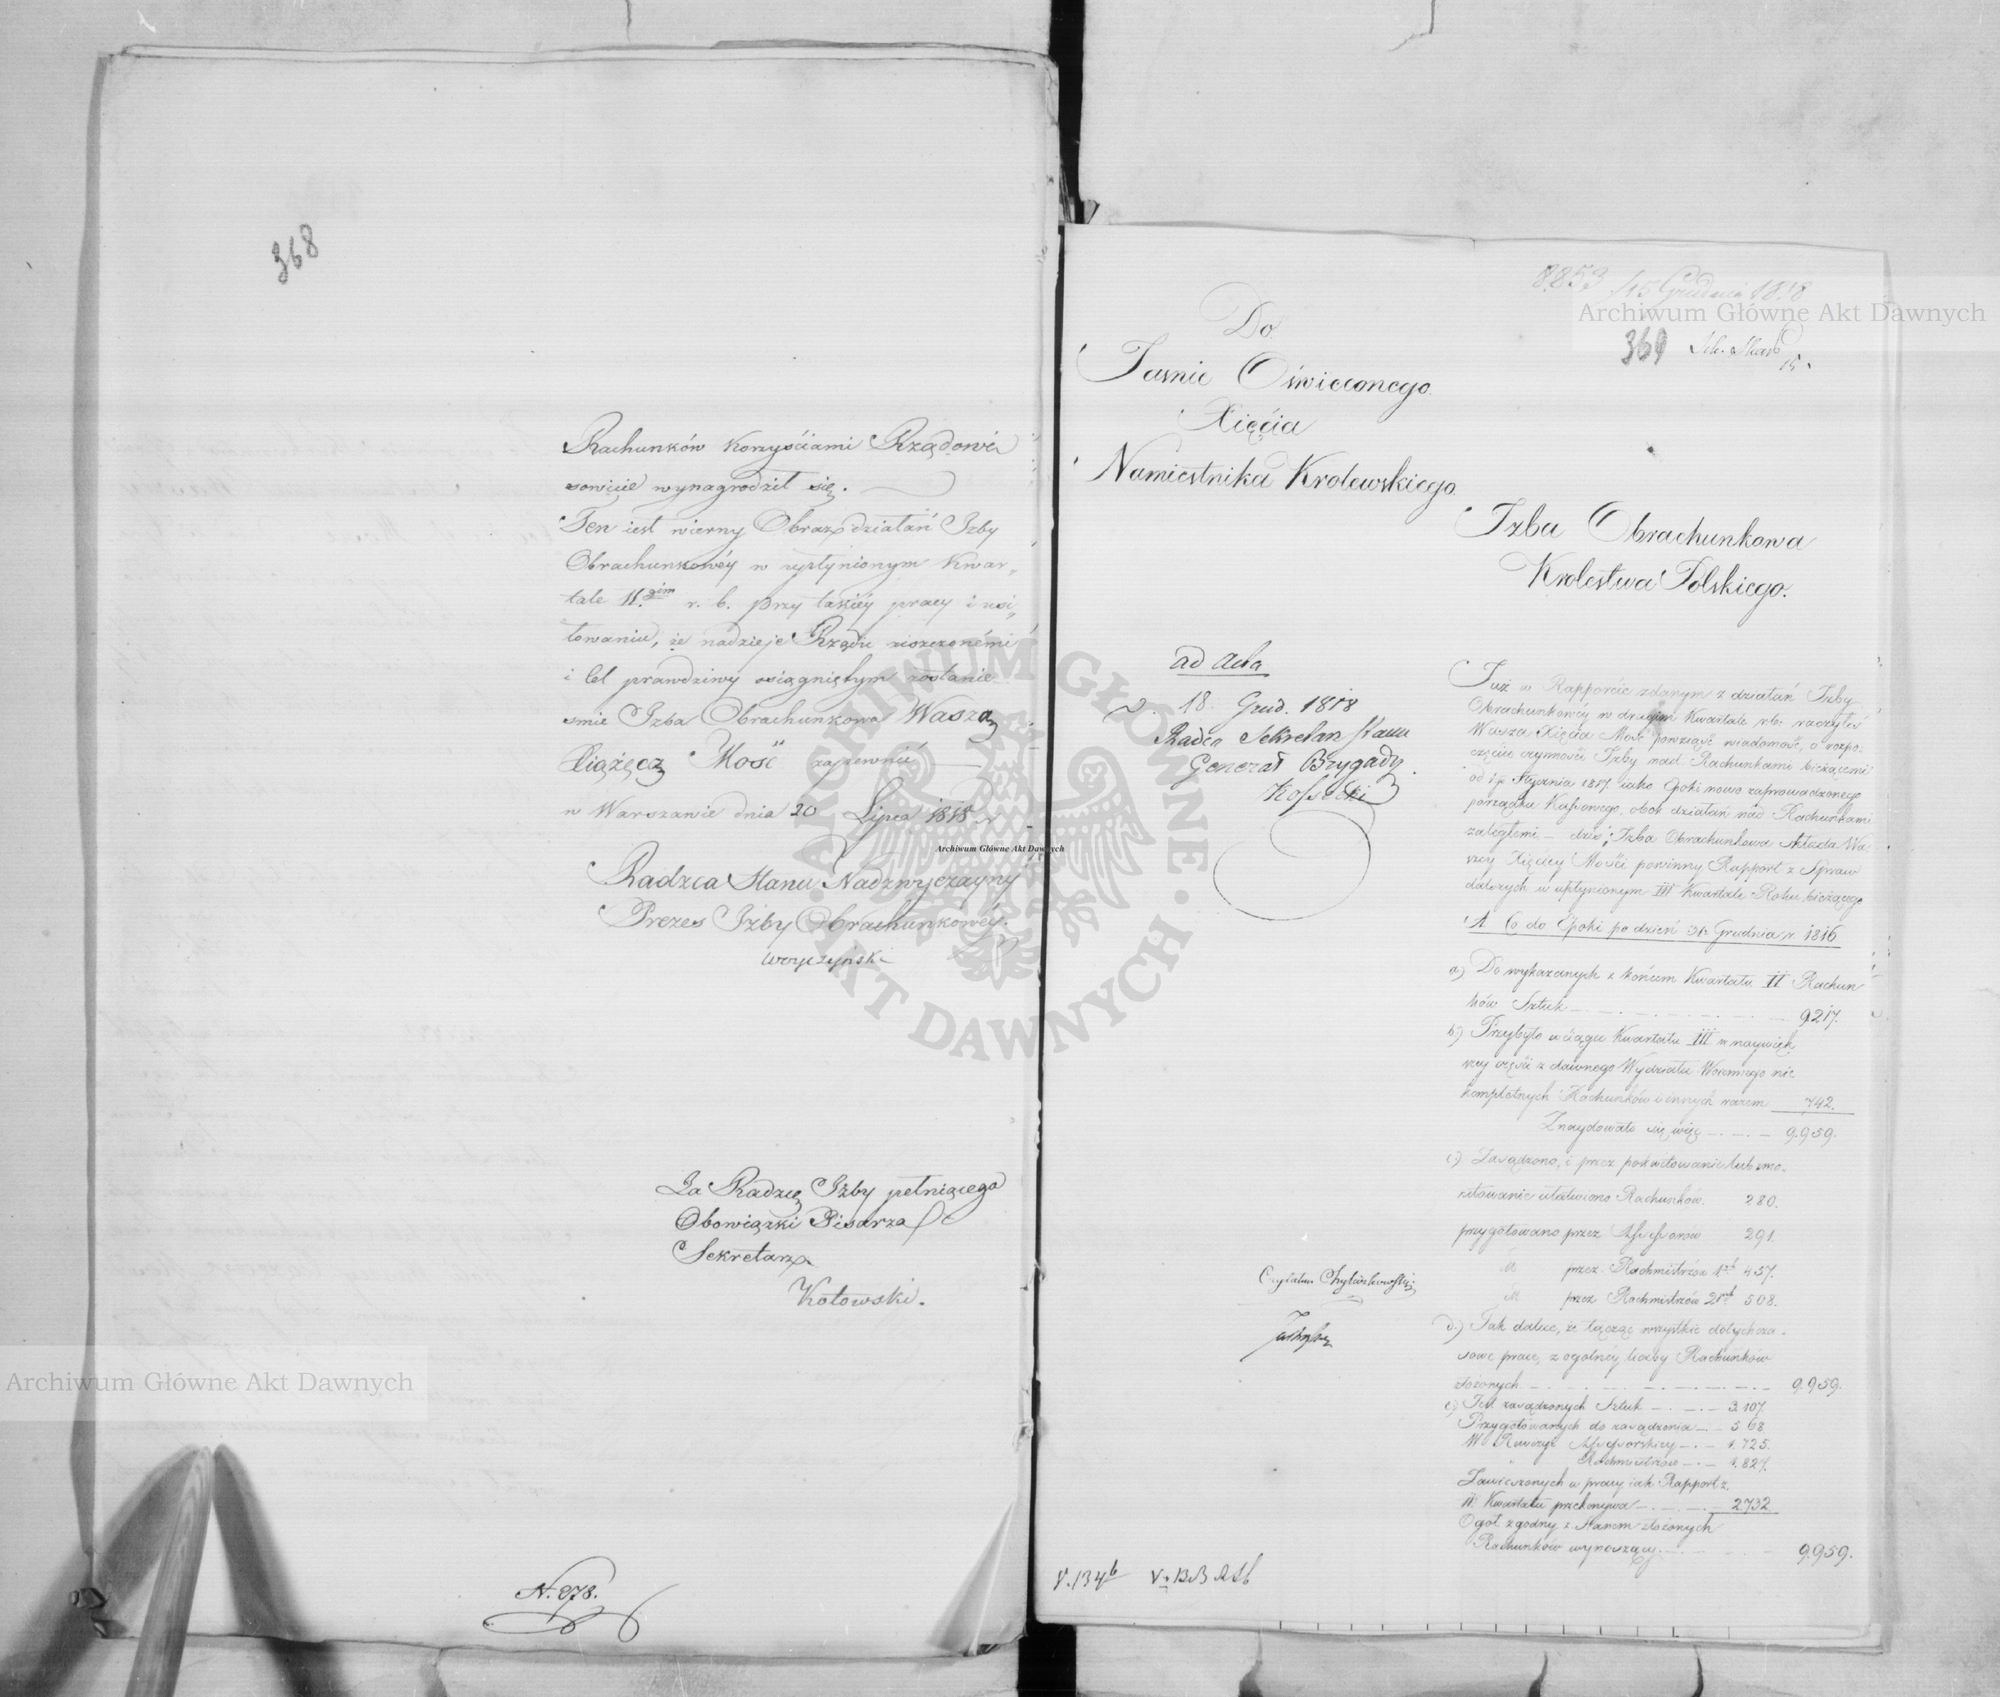 368
Rachunków korzyściami Rządowi
sowicie wynagrodził się.
Ten iest wierny Obraz działań Izby
Obrachunkowéy w upłynionym Kwar„
tale II.gim r. b. przy takiéy pracy i usi„
łowaniu, że nadzieje Rządu ziszczonémi
i Cel prawdziwy osiągniętym zostanie
smie Izba Obrachunkowa Waszą
Xiążęcą Mość zapewnić
w Warszawie dnia 20 Lipca 1818 r.
Radzca Stanu Nadzwyczayny
Prezes Izby Obrachunkowéy.
Woyczyński
Za Radzcę Izby pełniącego
Obowiązki Pisarza
Sekretarz
Kotowski.
N. 278.
8853 /15 Grudnia 1818
369
Do
Jaśnie Oświeconego
Xięcia
Namiestnika Krolewskiego.
Izba Obrachunkowa
Krolestwa Polskiego.
ad acta
d. 18. Grud. 1818
Radca Sekretarz Stanu
Generał Brygady.
Kossecki
Już w Rapporcie zdanym z działań Izby
Obrachunkowéy w drugim Kwartale r.b. raczyłeś
Wasza Xięcia Mość powziąść wiadomość, o rozpo-
częciu czynności Izby nad Rachunkami bieżącemi
od 1go Stycznia 1817 iako Epoki nowo zaprowadzonego
porządku Kassowego, obok działań nad Rachunkami
zaległemi — dziś, Izba Obrachunkowa składa Wa-
szey Xięcey Mości powinny Rapport z Spraw
dalszych w upłynionym III Kwartale Roku bieżącego
A Co do Epoki po dzień 31 Grudnia r. 1816
a) Do wykazanych z końcem Kwartału II Rachun
ków Sztuk 9217.
b) Przybyło w ciągu Kwartału III w naywięk
szey części z dawnego Wydziału Woiennego nie
kompletnych Rachunków i innych razem 742.
Znaydowało się więc 9.959.
c) Zasądzono, i przez pokwitowanie lub zmo-
nitowanie ułatwiono Rachunków. 280.
przygotowano przez Assessorów 291.
przez Rachmistrzów 1ch 457.
przez Rachmistrzów 2ch 508.
d) Tak dalece, że łącząc wszystkie dotychcza-
sowe prace, z ogolnéy liczby Rachunków
złożonych 9.959.
e) Jest zasądzonych Sztuk 3.107.
Przygotowanych do zasądzenia 568
W Rewizyi Assessorskiey 1.725.
Rachmistrzów 1.827.
Zawieszonych w pracy iak Rapport z
II Kwartału przekonywa 2732
Ogół zgodny z Stanem złożonych
Rachunków wynoszący 9959.
V. 134b
Archiwum Główne Akt Dawnych
Archiwum Główne Akt Dawnych
Archiwum Główne Akt Dawnych
ARCHIWUM GŁÓWNE AKT DAWNYCH